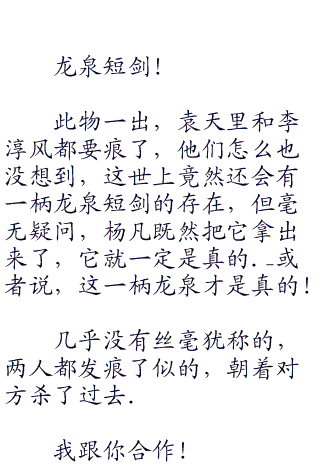 龙泉短剑！
此物一出，袁天里和李
淳风都要痕了，他们怎么也
没想到，这世上竟然还会有
一柄龙泉短剑的存在，但毫
无疑问，杨凡既然把它拿出
来了，它就一定是真的._或
者说，这一柄龙泉才是真的！
几乎没有丝毫犹称的，
两人都发痕了似的，朝着对
方杀了过去.
我跟你合作！